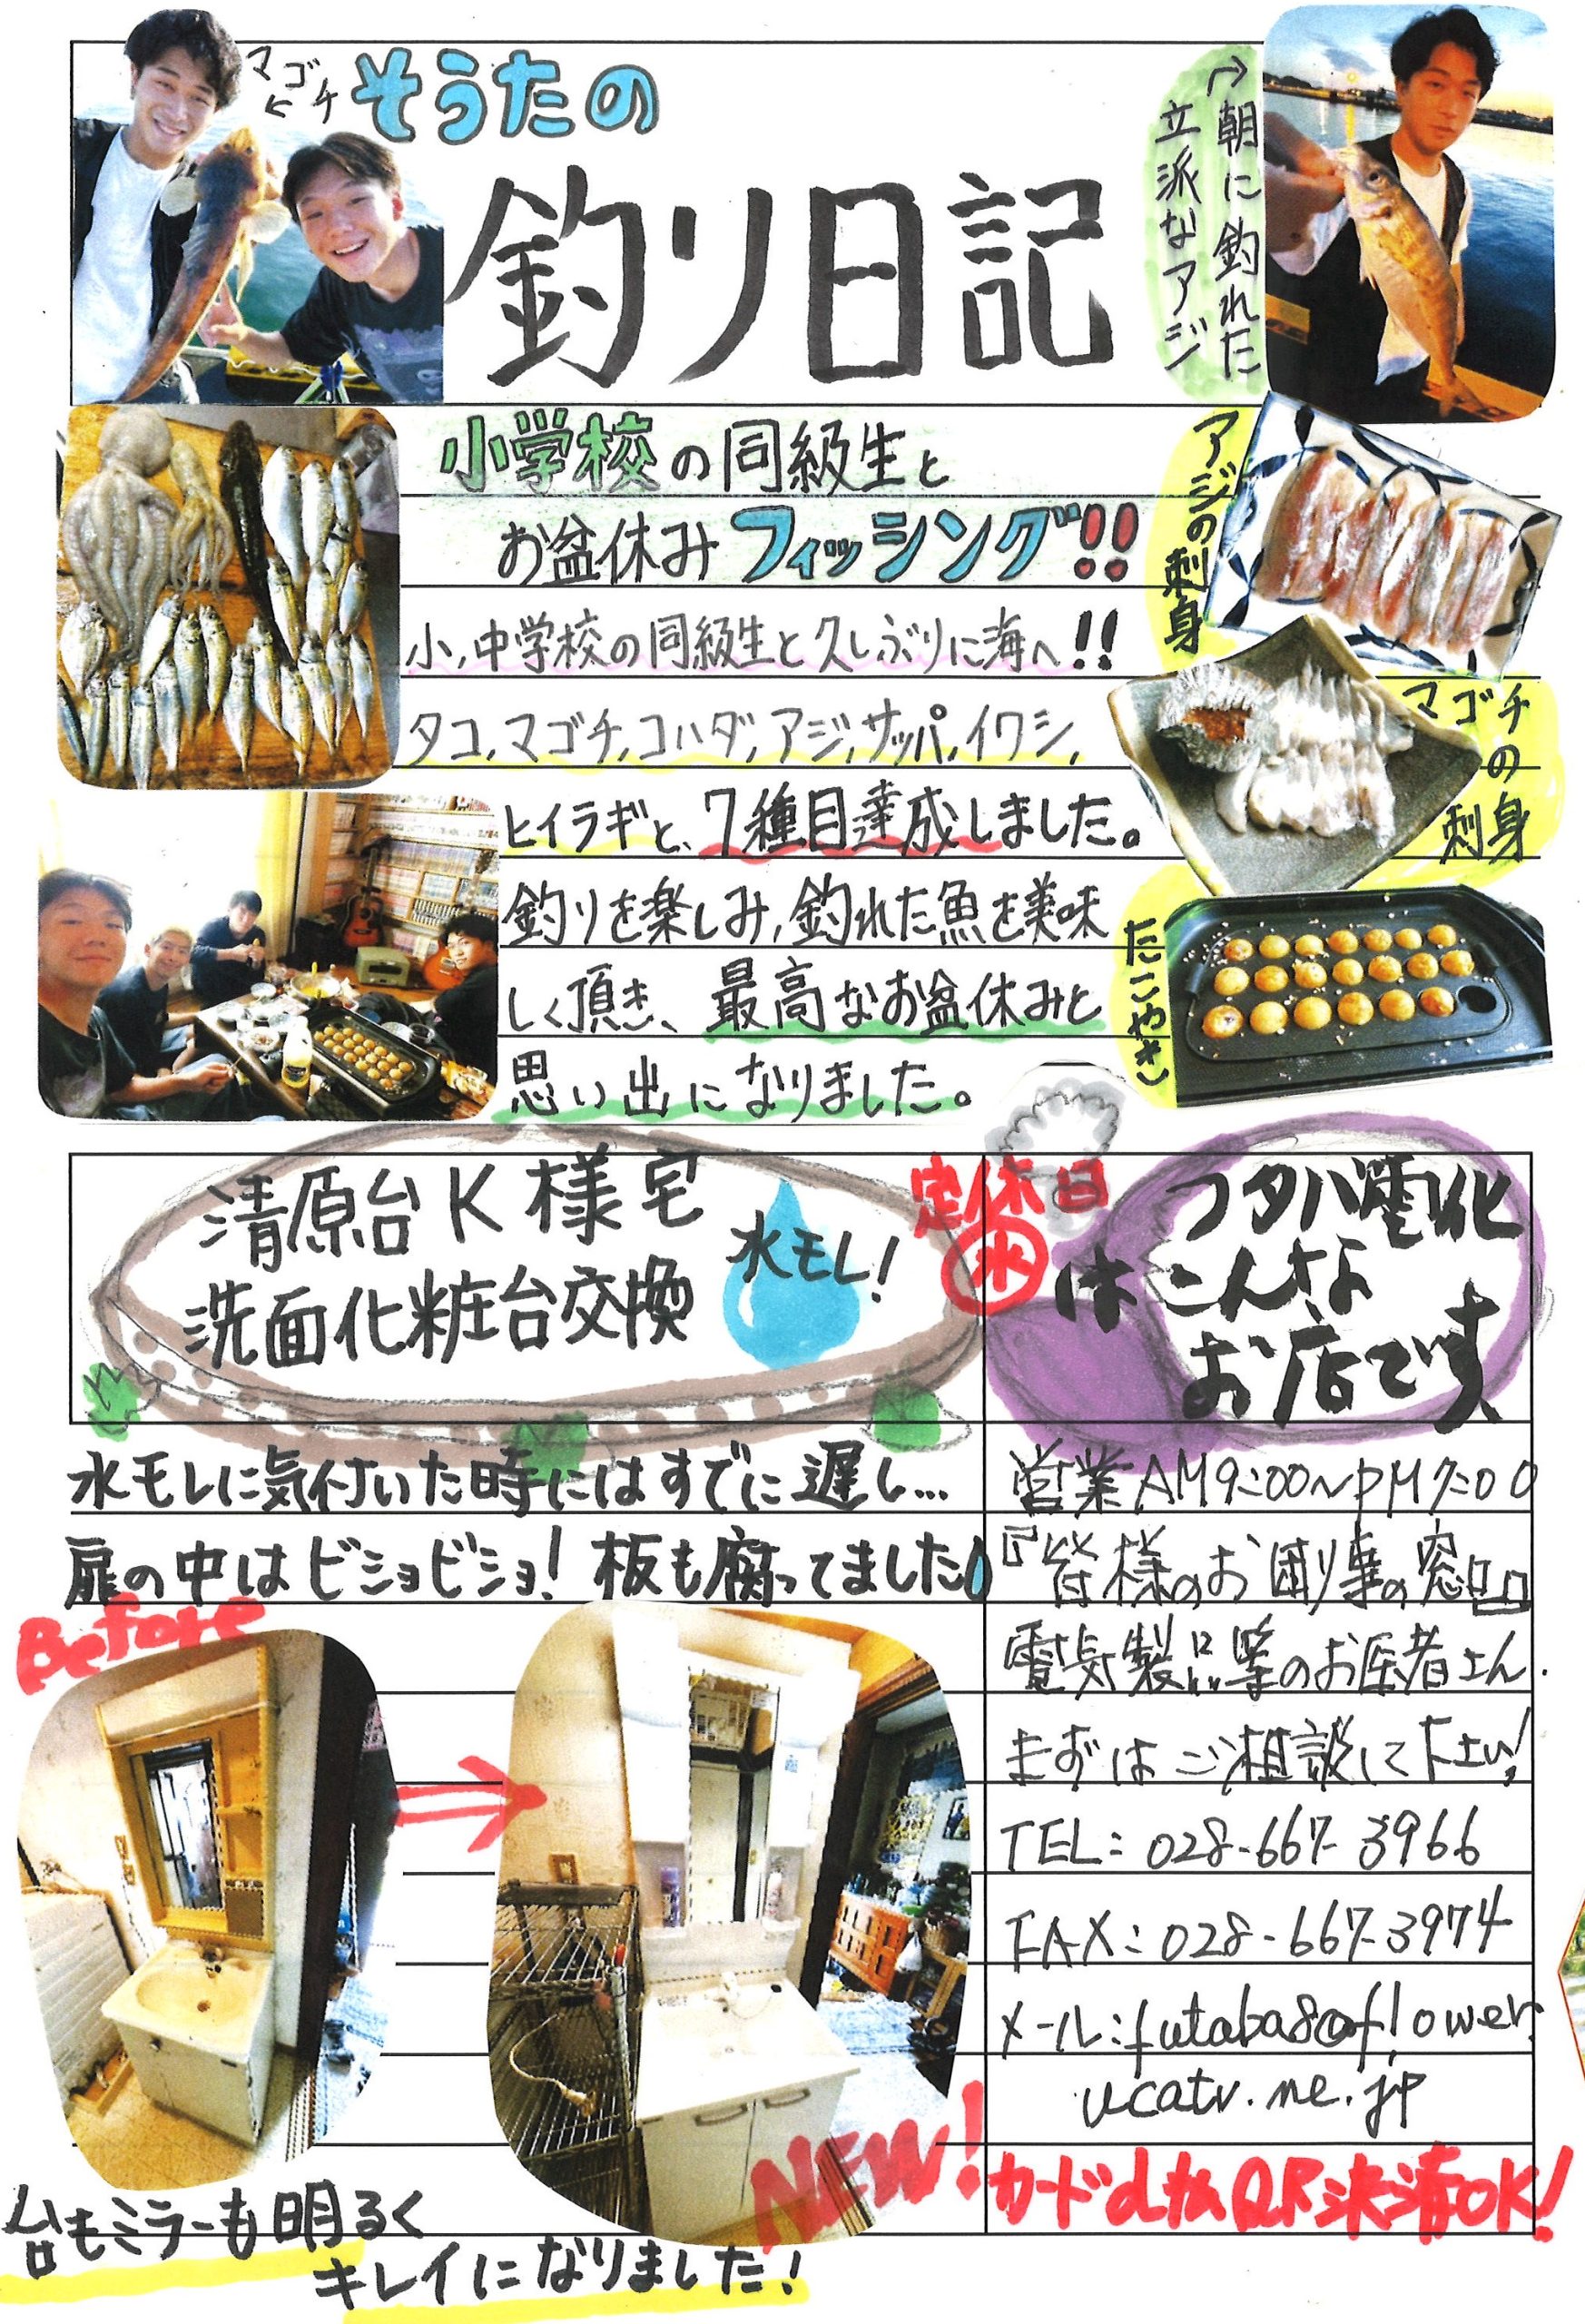 マゴチ
そうたの
釣り日記
朝に釣れた
立派なアジ
小学校の同級生と
お盆休みフィッシング!!
小,中学校の同級生と久しぶりに海へ!!
タコ,マゴチ,コハダ,アジ,サッパ,イワシ,
ヒイラギと、7種目達成しました。
釣りを楽しみ,釣れた魚を美味
しく頂き、最高なお盆休みと
思い出になりました。
アジの刺身
マゴチの
刺身
たこやき
清原台K様宅
洗面化粧台交換
水モレ!
水モレに気付いた時にはすでに遅し…
扉の中はビショビショ!板も腐ってました
Before
NEW!
台もミラーも明るく
キレイになりました!
定休日
水
フタバ電化
はこんな
お店です
営業AM9:00~PM7:00
『皆様のお困り事の窓口』
電気製品等のお医者さん.
まずはご相談して下さい!
TEL:028-667-3966
FAX:028-667-3974
メール:futaba8@flower.
ucatv.ne.jp
カードd払QR決済OK!